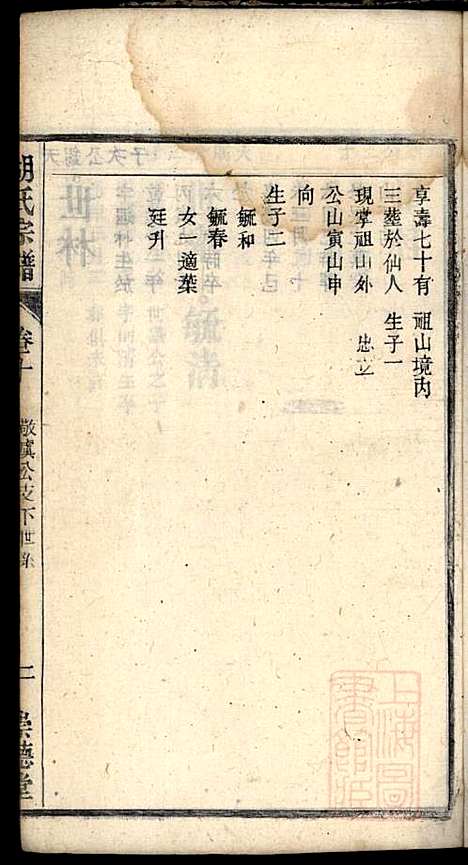 享壽七十有 祖山境内
三塟於仙人 生子一
現掌祖山外 忠立
公山寅山申
向
生子二
毓和
毓春
女一適葉
廷升
胡氏宗譜
卷十
敬真公支下世系
二
崇德堂
上海圖書館藏